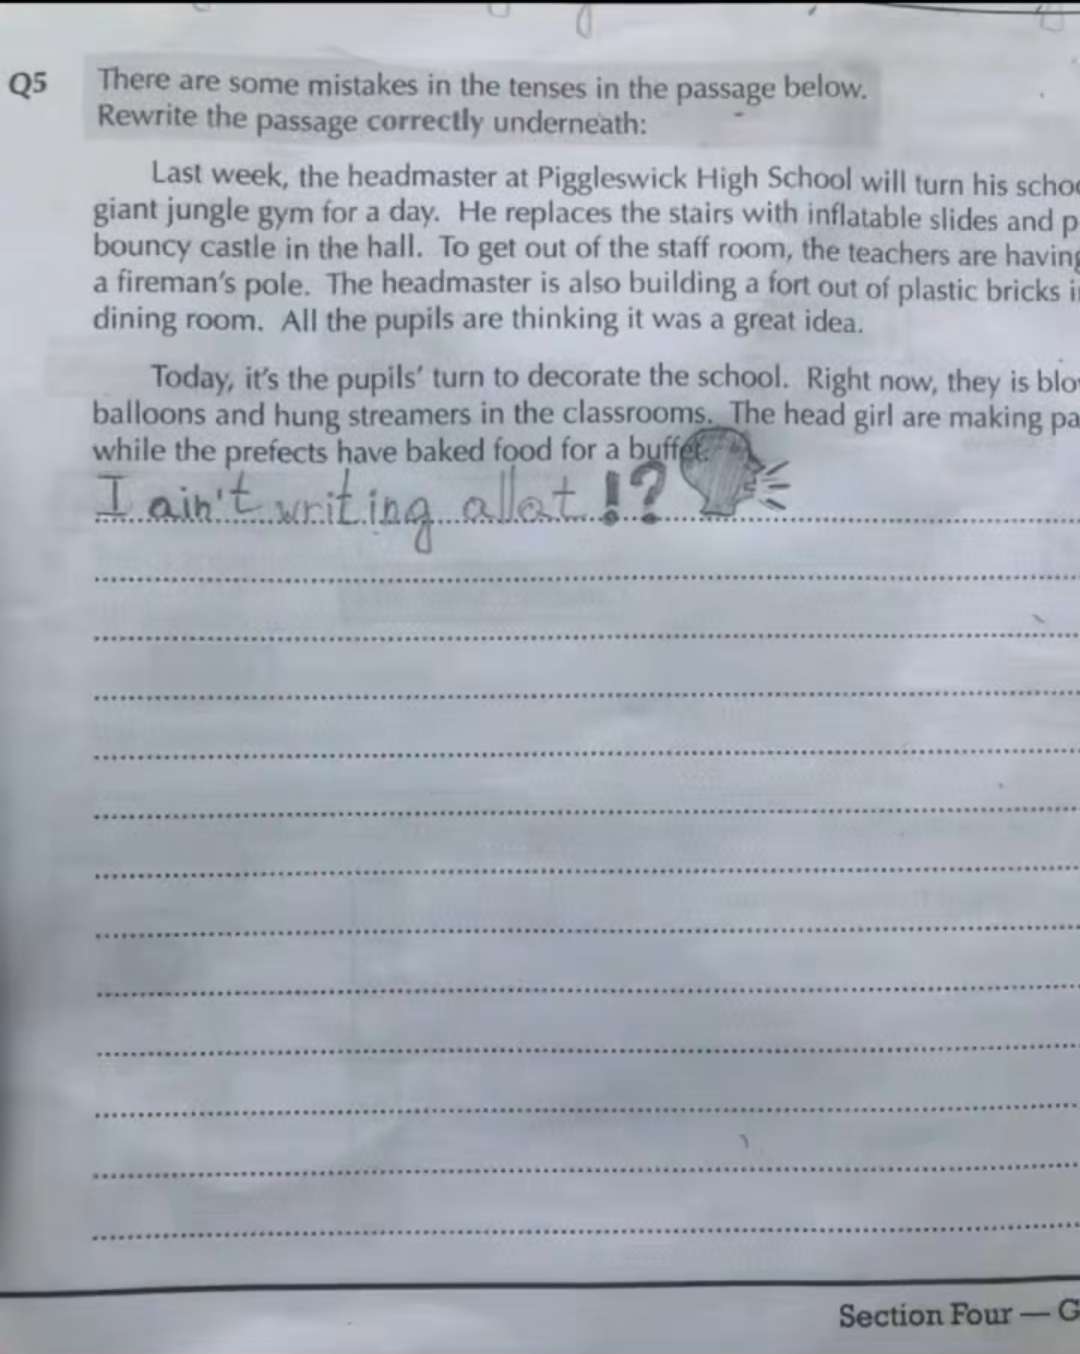 Q5 There are some mistakes in the tenses in the passage below.
Rewrite the passage correctly underneath:
Last week, the headmaster at Piggleswick High School will turn his
giant jungle gym for a day. He replaces the stairs with inflatable slides and
bouncy castle in the hall. To get out of the staff room, the teachers are having
a fireman's pole. The headmaster is also building a fort out of plastic bricks
dining room. All the pupils are thinking it was a great idea.
Today, it's the pupils' turn to decorate the school. Right now, they is
balloons and hung streamers in the classrooms. The head girl are making
while the prefects have baked food for a buffet.
I ain't writing allat !?
Section Four —